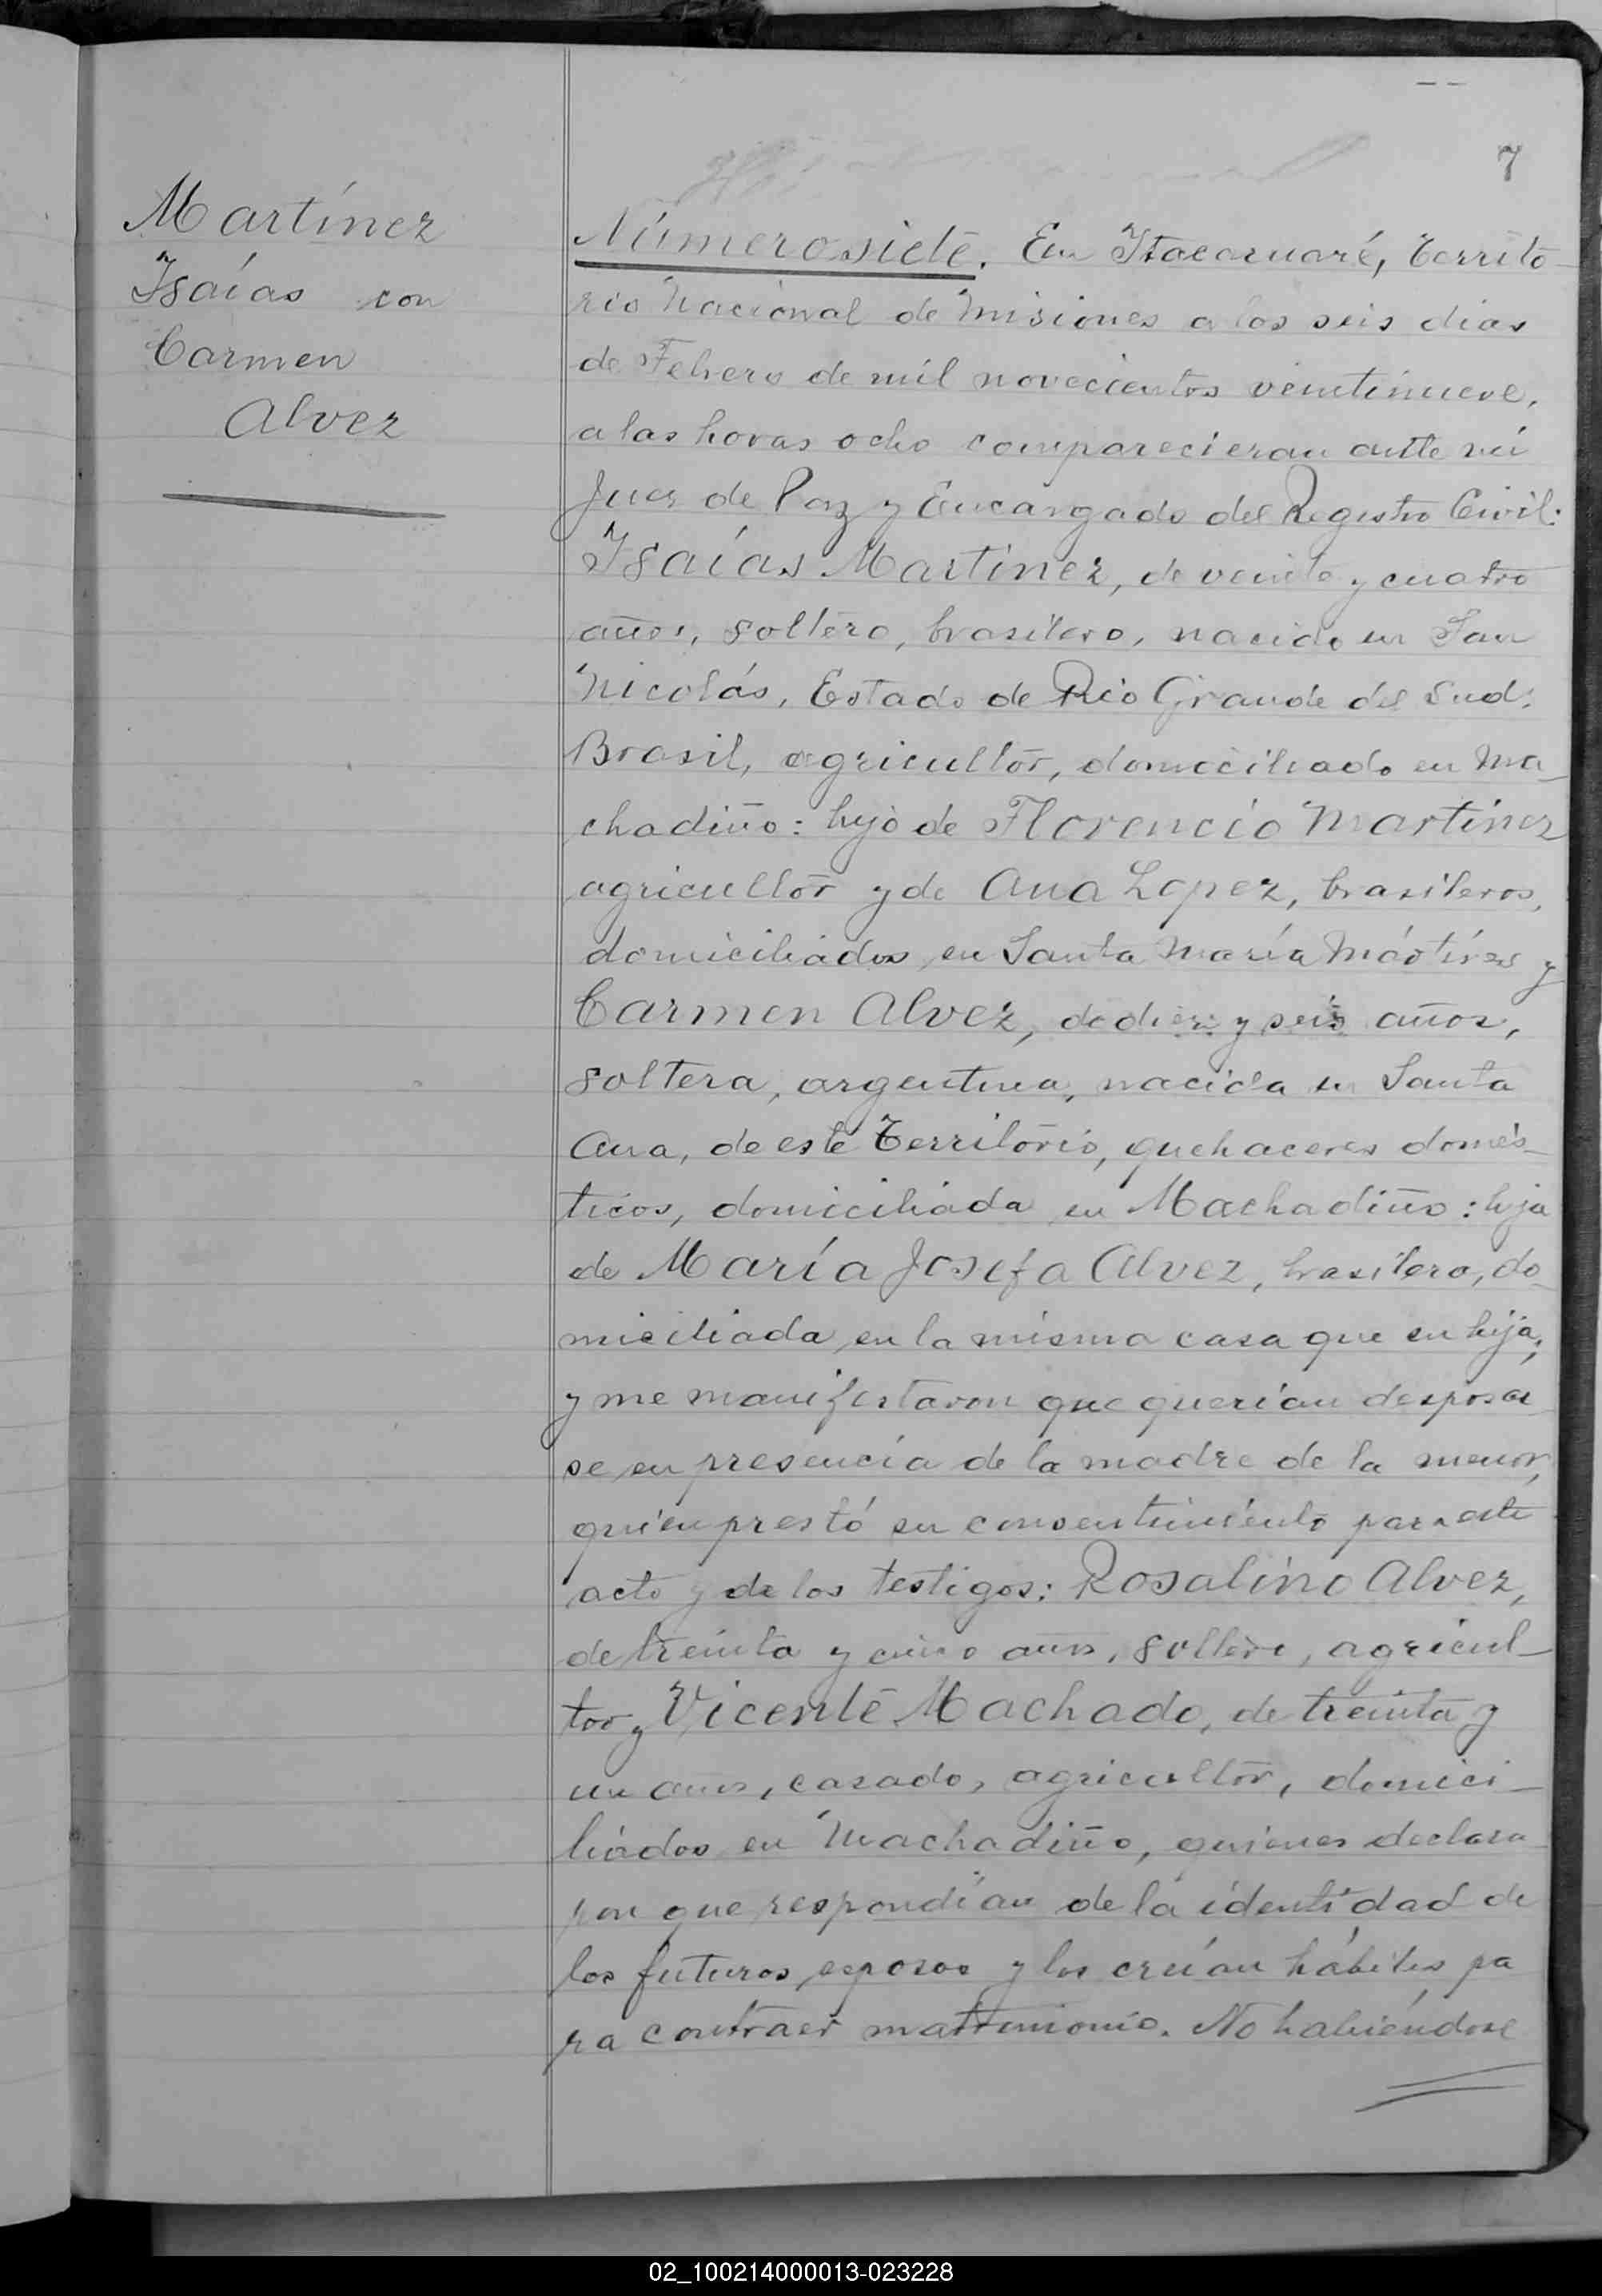 7
Martínez
Isaías con
Carmen
Alvez
Número siete. En Itacaruaré, Territo
rio Nacional de Misiones a los seis dias
de Febrero de mil novecientos veintinueve,
a las horas ocho comparecieran ante mí
Juez de Paz y Encargado del Registro Civil:
Isaías Martinez, de veinte y cuatro
años, soltero, brasilero, nacido en San
Nicolás, Estado de Rio Grande del Sud,
Brasil, agricultor, domiciliado en Ma-
chadiño: hijo de Florencio Martínez
agricultor y de Ana Lopez, brasileros,
domiciliados en Santa María Mártires y
Carmen Alvez, de diez y seis años,
soltera, argentina, nacida en Santa
Ana, de este Territorio, quehaceres domés-
ticos, domiciliada en Machadiño: hija
de María Josefa Alvez, brasilera, do-
miciliada en la misma casa que su hija;
y me manifestaron que querían desposar
se en presencia de la madre de la menor,
quien prestó su consentimiento para este
acto y de los testigos: Rosalino Alvez,
de treinta y cinco años, soltero, agricul-
tor y Vicente Machado, de treinta y
un años, casado, agricultor, domici-
liados en Machadiño, quienes declara
ron que respondían de la identidad de
los futuros esposos y los creían hábiles pa
ra contraer matrimonio. No habiéndose
02_100214000013-023228